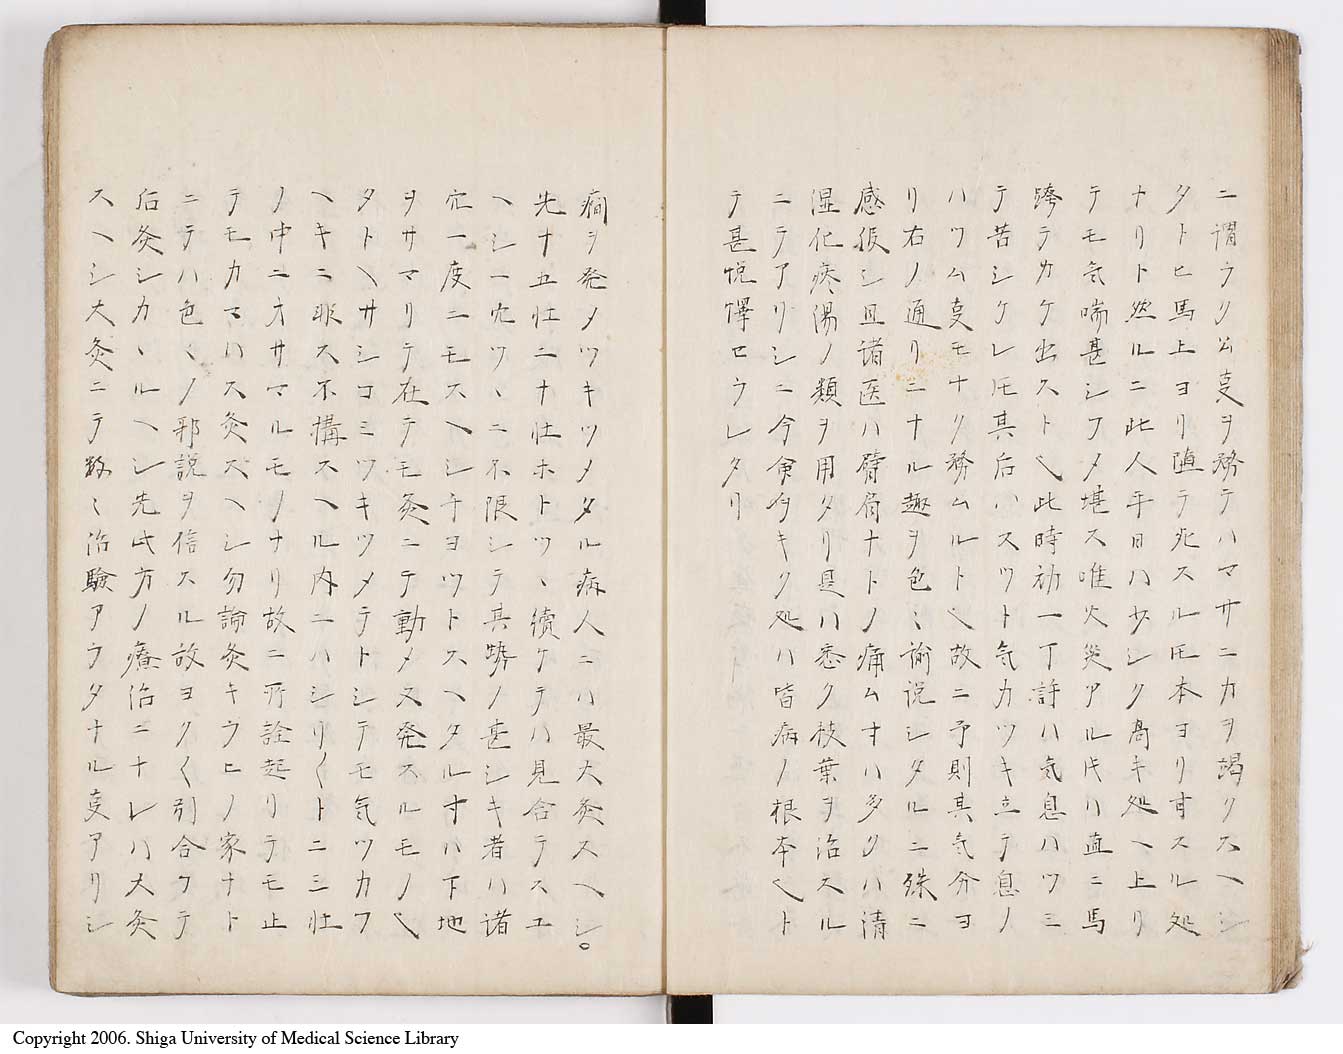 ニ謂ウクム㕝ヲ務テハマサニカヲ竭クスヘシ
タトヒ馬上ヨリ堕テ死スル𪜈本ヨリ甘スル処
ナリト然ルニ此人平日ハ少シク高キ処ヘ上リ
テモ気喘甚シフメ堪ス唯火災アル片ハ直ニ馬
跨テカケ出スト乄此時初一丁許ハ気息ハツミ
テ苦シケレ𪜈其后ハスツト気カツキ立テ息ノ
ハツム㕝モナク務ムルト乄故ニ予則其気分ヨ
リ右ノ通リニナル趣ヲ色〻諭説シタルニ殊ニ
感伏シ且諸医ハ臂肩ナトノ痛ムヿハ多クハ清
湿化痰湯ノ類ヲ用タリ是ハ悉ク枝葉ヲ治スル
ニテアリシニ今命タキク処ハ皆病ノ根本乄ト
テ甚悦懌セラレタリ
癇ヲ発メツキツメタル病人ニハ最大灸スヘシ。
先十五壮二十壮ホトツヽ続ケテハ見合テスエ
ヘシ一穴ツヽニ不限シテ其勢ノ甚シキ者ハ諸
穴一度ニモスヘシチヨツトスヘタルヿハ下地
ヲサマリテ在テモ灸ニテ動メ又発スルモノ乄
タトヘサシコミツキツメテトシテモ気ツカフ
ヘキニ非ス不構スヘル内ニハシリ〱ト二三壮
ノ中ニオサマルモノナリ故ニ所詮起リテモ止
テモカマハス灸スヘシ勿論灸キラヒノ家ナト
ニテハ色〱ノ邪説ヲ信スル故ヨク〱引合ケテ
后灸シカヽルヘシ先此方ノ療治ニナレハ大灸
スヘシ大灸ニテ数〻治験アラタナル㕝アリシ
Copyright 2006. Shiga University of Medical Science Library